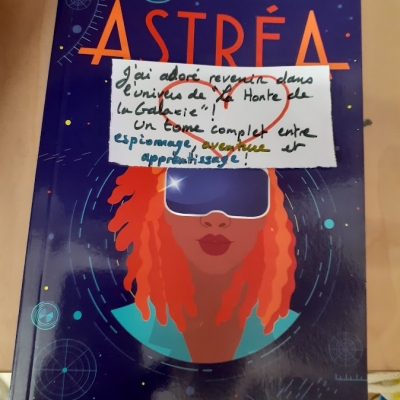 ASTRÉA
J'ai adoré revenir dans
l'univers de "La Honte de
la Galaxie" !
Un tome complet entre
espionnage, aventure et
apprentissage !